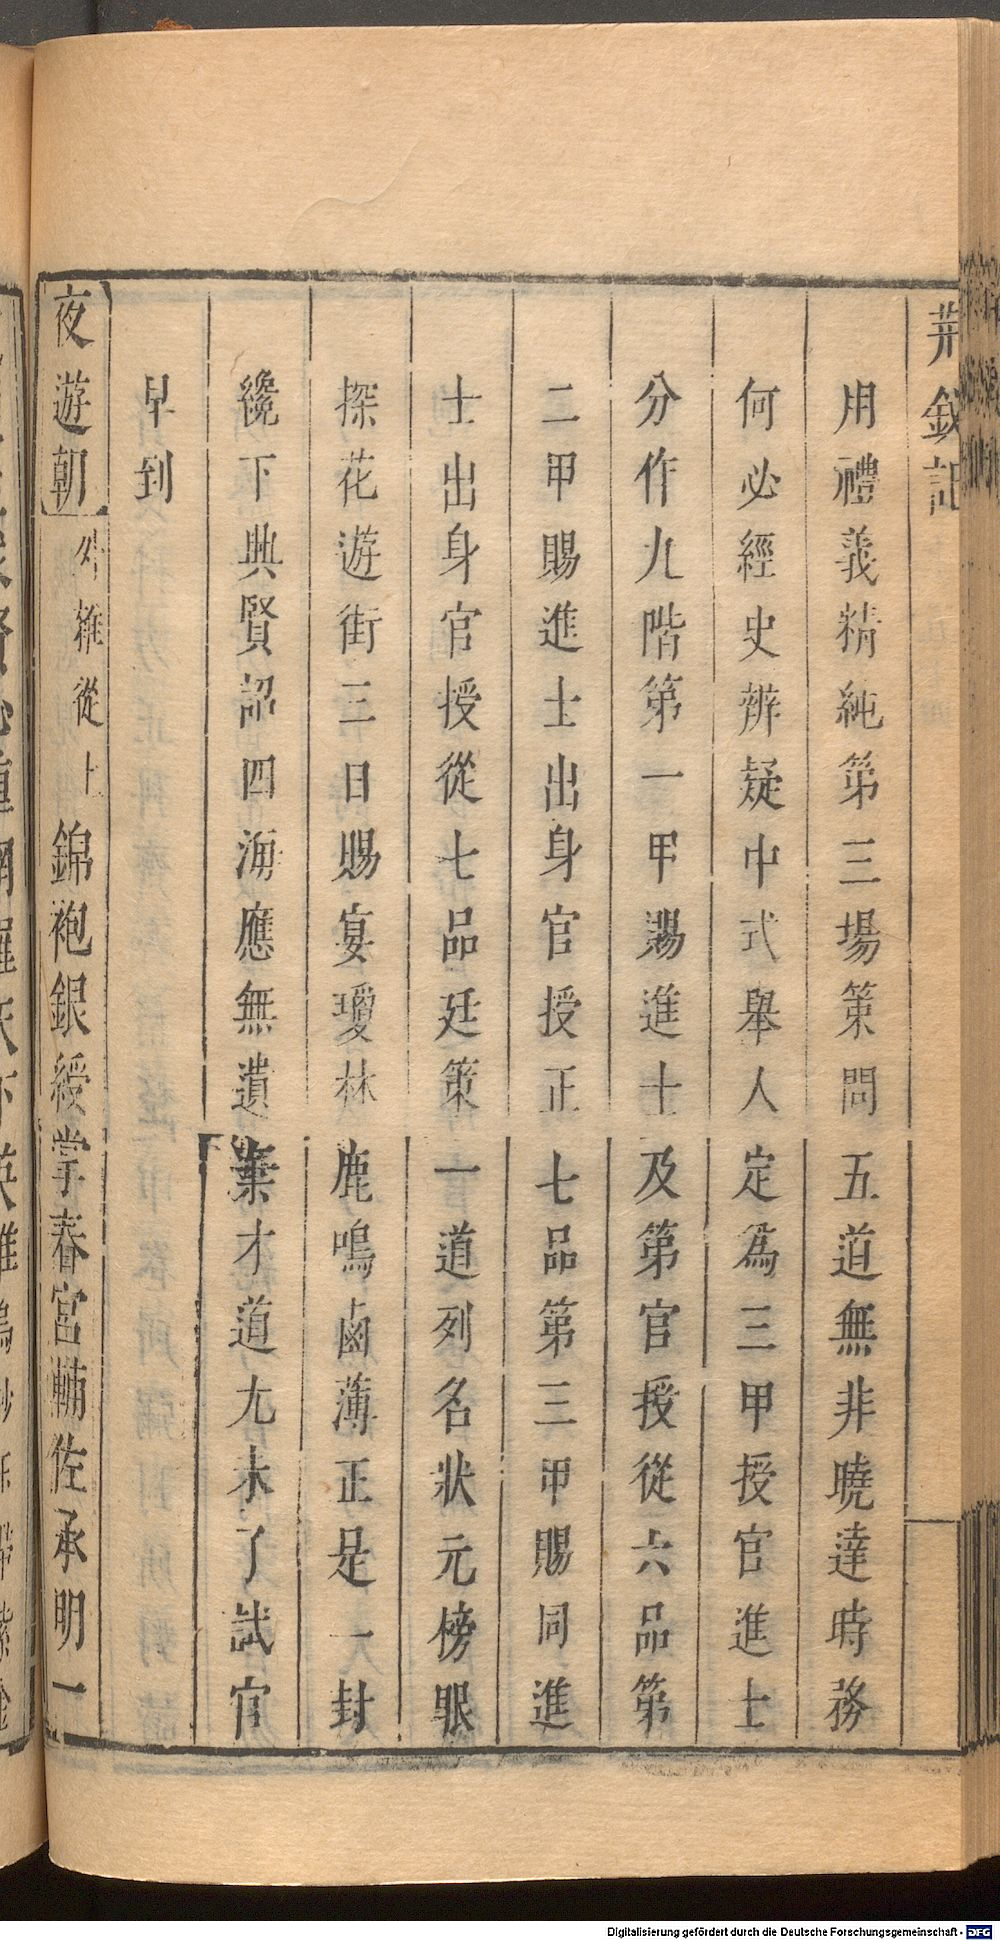 荆釵記
用禮義精純第三場策問五道無非曉達時務
何必經史辨疑中式舉人定爲三甲授官進士
分作九階第一甲賜進士及第官授從六品第
二甲賜進士出身官授正七品第三甲賜同進
士出身官授從七品廷策一道列名狀元榜眼
探花遊街三日賜宴瓊林鹿鳴鹵薄正是一封
纔下興賢詔四海應無遺棄才道尤未了試官
早到
夜遊朝外雜從上錦袍銀綬掌春宮輔佐承明一
Digitalisierung gefördert durch die Deutsche Forschungsgemeinschaft - DFG